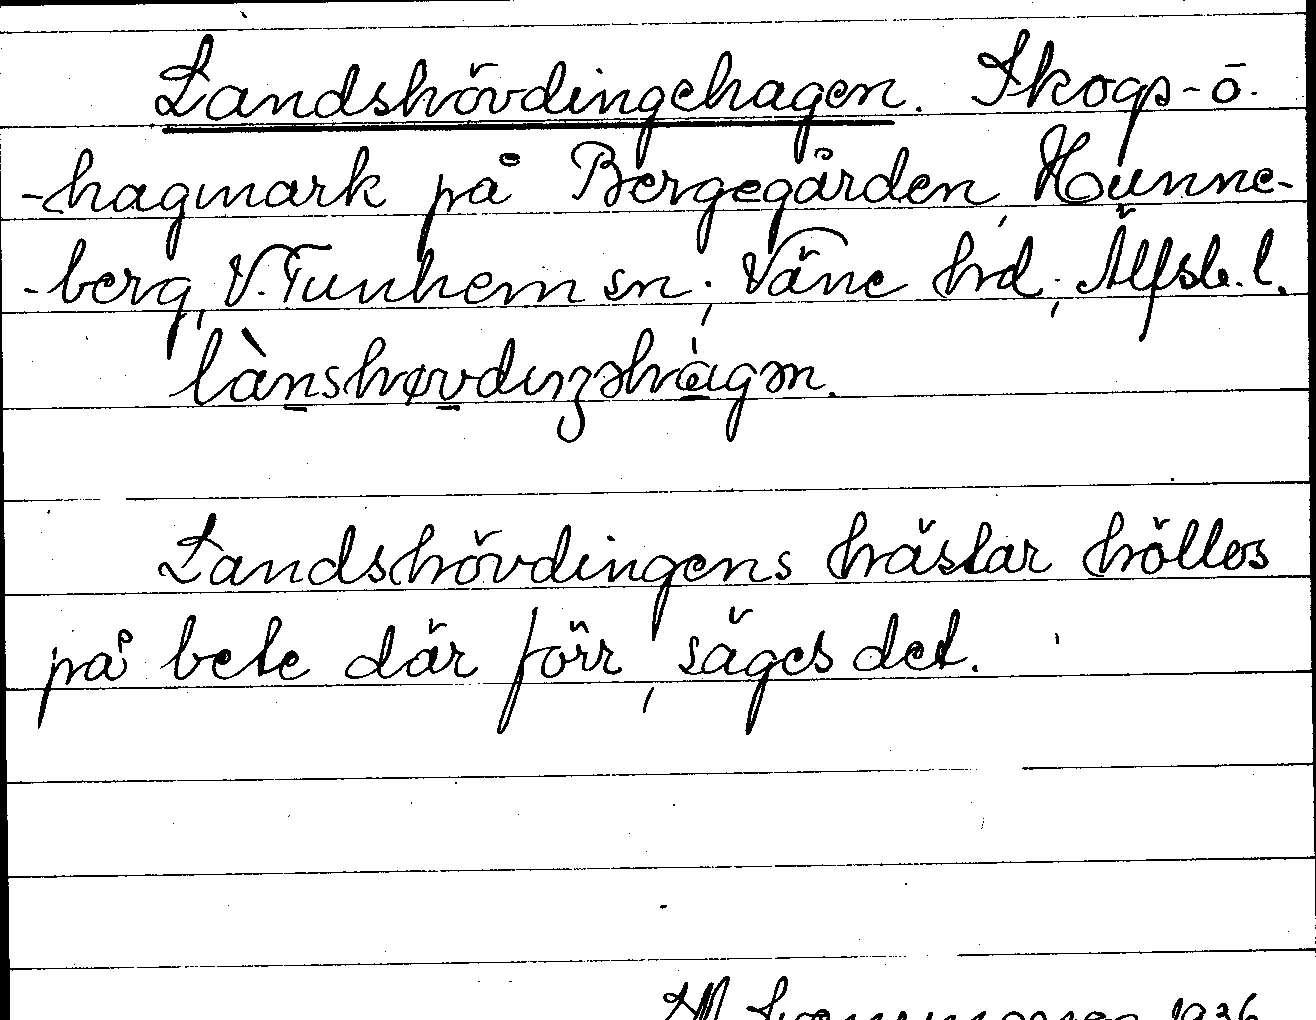 Landshövdingehagen. Skogs- o.
-hagmark på Bergegården, Hunne-
-berg, V. Tunhem sn; Väne hd; Älfsb. l.
lànshøvdıŋəhàgən.
Landshövdingens hästar höllos
på bete där förr, säges det.
1936